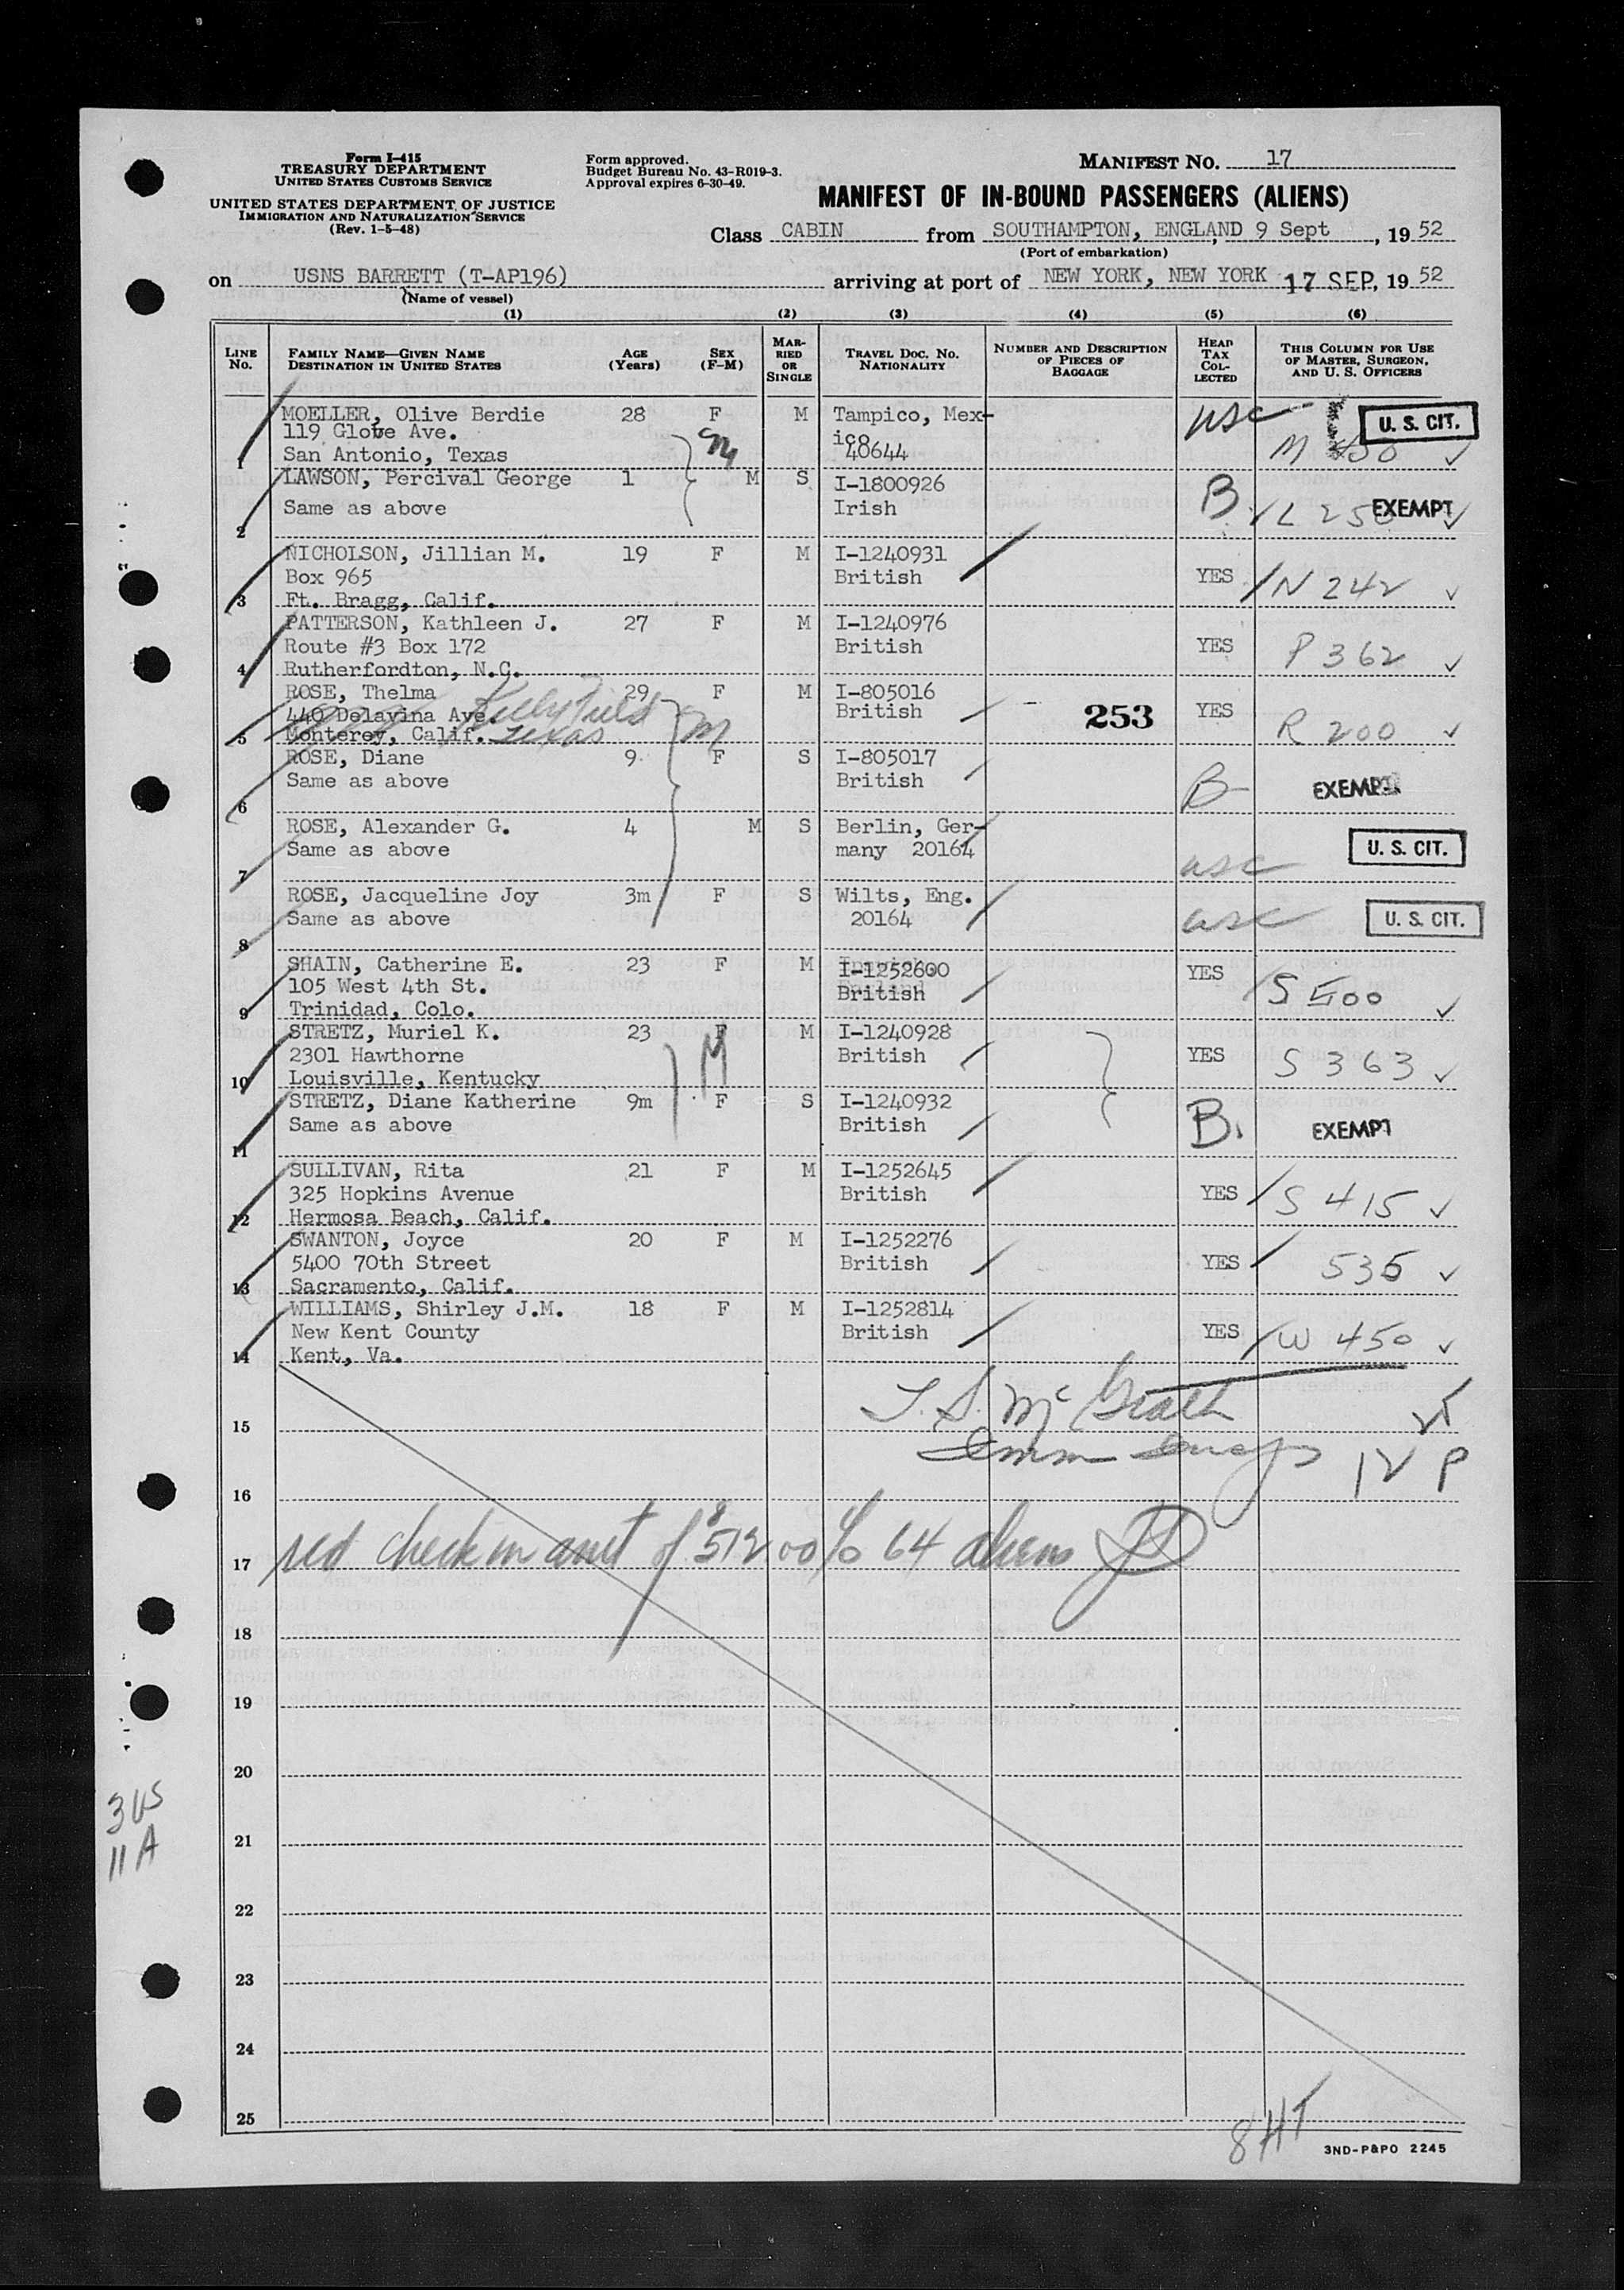 Form I-415
TREASURY DEPARTMENT
UNITED STATES CUSTOMS SERVICE
UNITED STATES DEPARTMENT OF JUSTICE
IMMIGRATION AND NATURALIZATION SERVICE
(Rev. 1-5-48)
Form approved.
Budget Bureau No. 43-R019-3.
Approval expires 6-30-49.
MANIFEST NO. 17
MANIFEST OF IN-BOUND PASSENGERS (ALIENS)
Class CABIN from SOUTHAMPTON, ENGLAND, 9 Sept, 19 52
(Port of embarkation)
on USNS BARRETT (T-AP196) arriving at port of NEW YORK, NEW YORK 17 SEP, 19 52
(Name of vessel)
(1) (2) (3) (4) (5) (6)
LINE NO.
FAMILY NAME—GIVEN NAME
DESTINATION IN UNITED STATES
AGE
(Years)
SEX
(F-M)
MAR-
RIED
OR
SINGLE
TRAVEL DOC. NO.
NATIONALITY
NUMBER AND DESCRIPTION
OF PIECES OF
BAGGAGE
HEAD
TAX
COL-
LECTED
THIS COLUMN FOR USE
OF MASTER, SURGEON,
AND U. S. OFFICERS
MOELLER, Olive Berdie 28 F M Tampico, Mex- usc U. S. CIT.
119 Globe Ave. ico M
1 San Antonio, Texas 40644
LAWSON, Percival George 1 M S I-1800926 B L 250 EXEMPT
Same as above Irish
2
NICHOLSON, Jillian M. 19 F M I-1240931
Box 965 British YES N 242
3 Ft. Bragg, Calif.
PATTERSON, Kathleen J. 27 F M I-1240976
Route #3 Box 172 British YES P 362
4 Rutherfordton, N.C.
ROSE, Thelma 29 F M I-805016
440 Delavina Ave. Kelly Field M British 253 YES R 200
5 Monterey, Calif. Texas
ROSE, Diane 9 F S I-805017
Same as above British B EXEMPT
6
ROSE, Alexander G. 4 M S Berlin, Ger-
Same as above many 20164 usc U. S. CIT.
7
ROSE, Jacqueline Joy 3m F S Wilts, Eng.
Same as above 20164 usc U. S. CIT.
8
SHAIN, Catherine E. 23 F M I-1252600
105 West 4th St. British YES S 500
9 Trinidad, Colo.
STRETZ, Muriel K. 23 F M I-1240928
2301 Hawthorne M British YES S 363
10 Louisville, Kentucky
STRETZ, Diane Katherine 9m F S I-1240932
Same as above British B. EXEMPT
11
SULLIVAN, Rita 21 F M I-1252645
325 Hopkins Avenue British YES S 415
12 Hermosa Beach, Calif.
SWANTON, Joyce 20 F M I-1252276
5400 70th Street British YES 535
13 Sacramento, Calif.
WILLIAMS, Shirley J.M. 18 F M I-1252814
New Kent County British YES W 450
14 Kent, Va.
T. S. McGrath
15
Imm 12 P
16
17 red check in amt of $512 00 % 64 aliens
18
19
20
3 US
11 A
21
22
23
24
25
8 HT
3ND-P&PO 2245